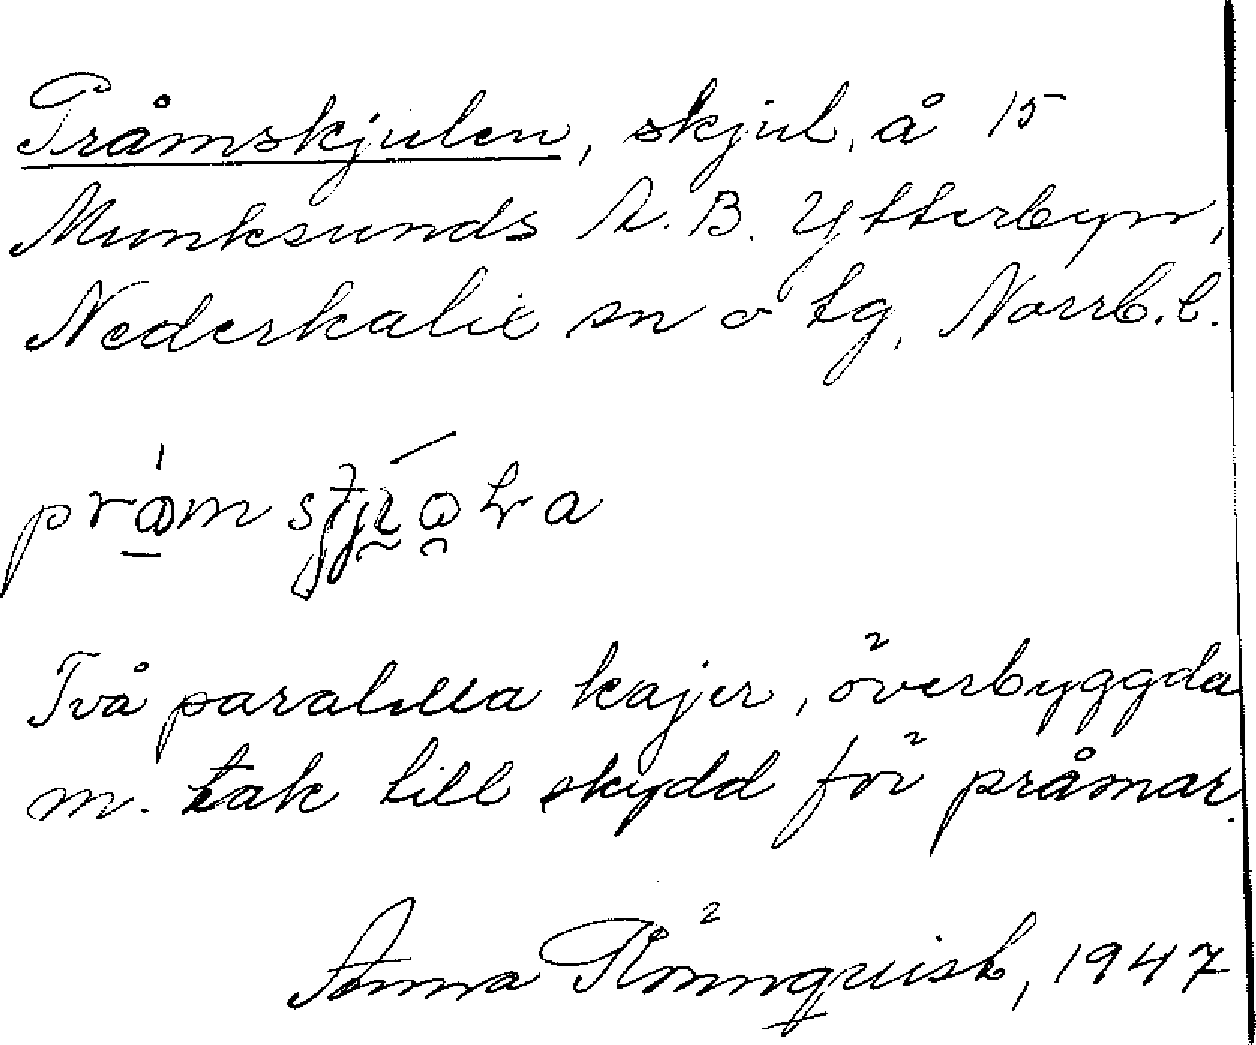 Pråmskjulen, skjul, å 15
Munksunds A.B. Ytterbyn,
Nederkalix sn o tg, Norrb.l.
Två paralella kajer, överbyggda
m. tak till skydd för pråmar.
Anna Rönnqvist, 1947